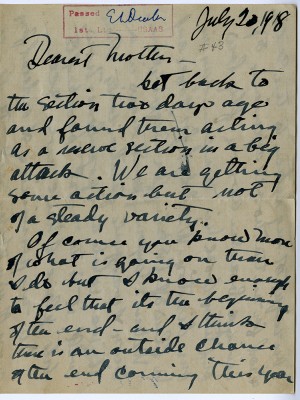 Passed
1st. Lt. USAAS
July 20, 1918
#43
Dearest Mother –
Got back to
the section two days ago
and found them acting
as a reserve section in a big
attack. We are getting
some action but not
of a steady variety.
Of course you know more
of what is going on than
I do but I know enough
to feel that its the beginning
of the end – and I think
there is an outside chance
of the end coming this year